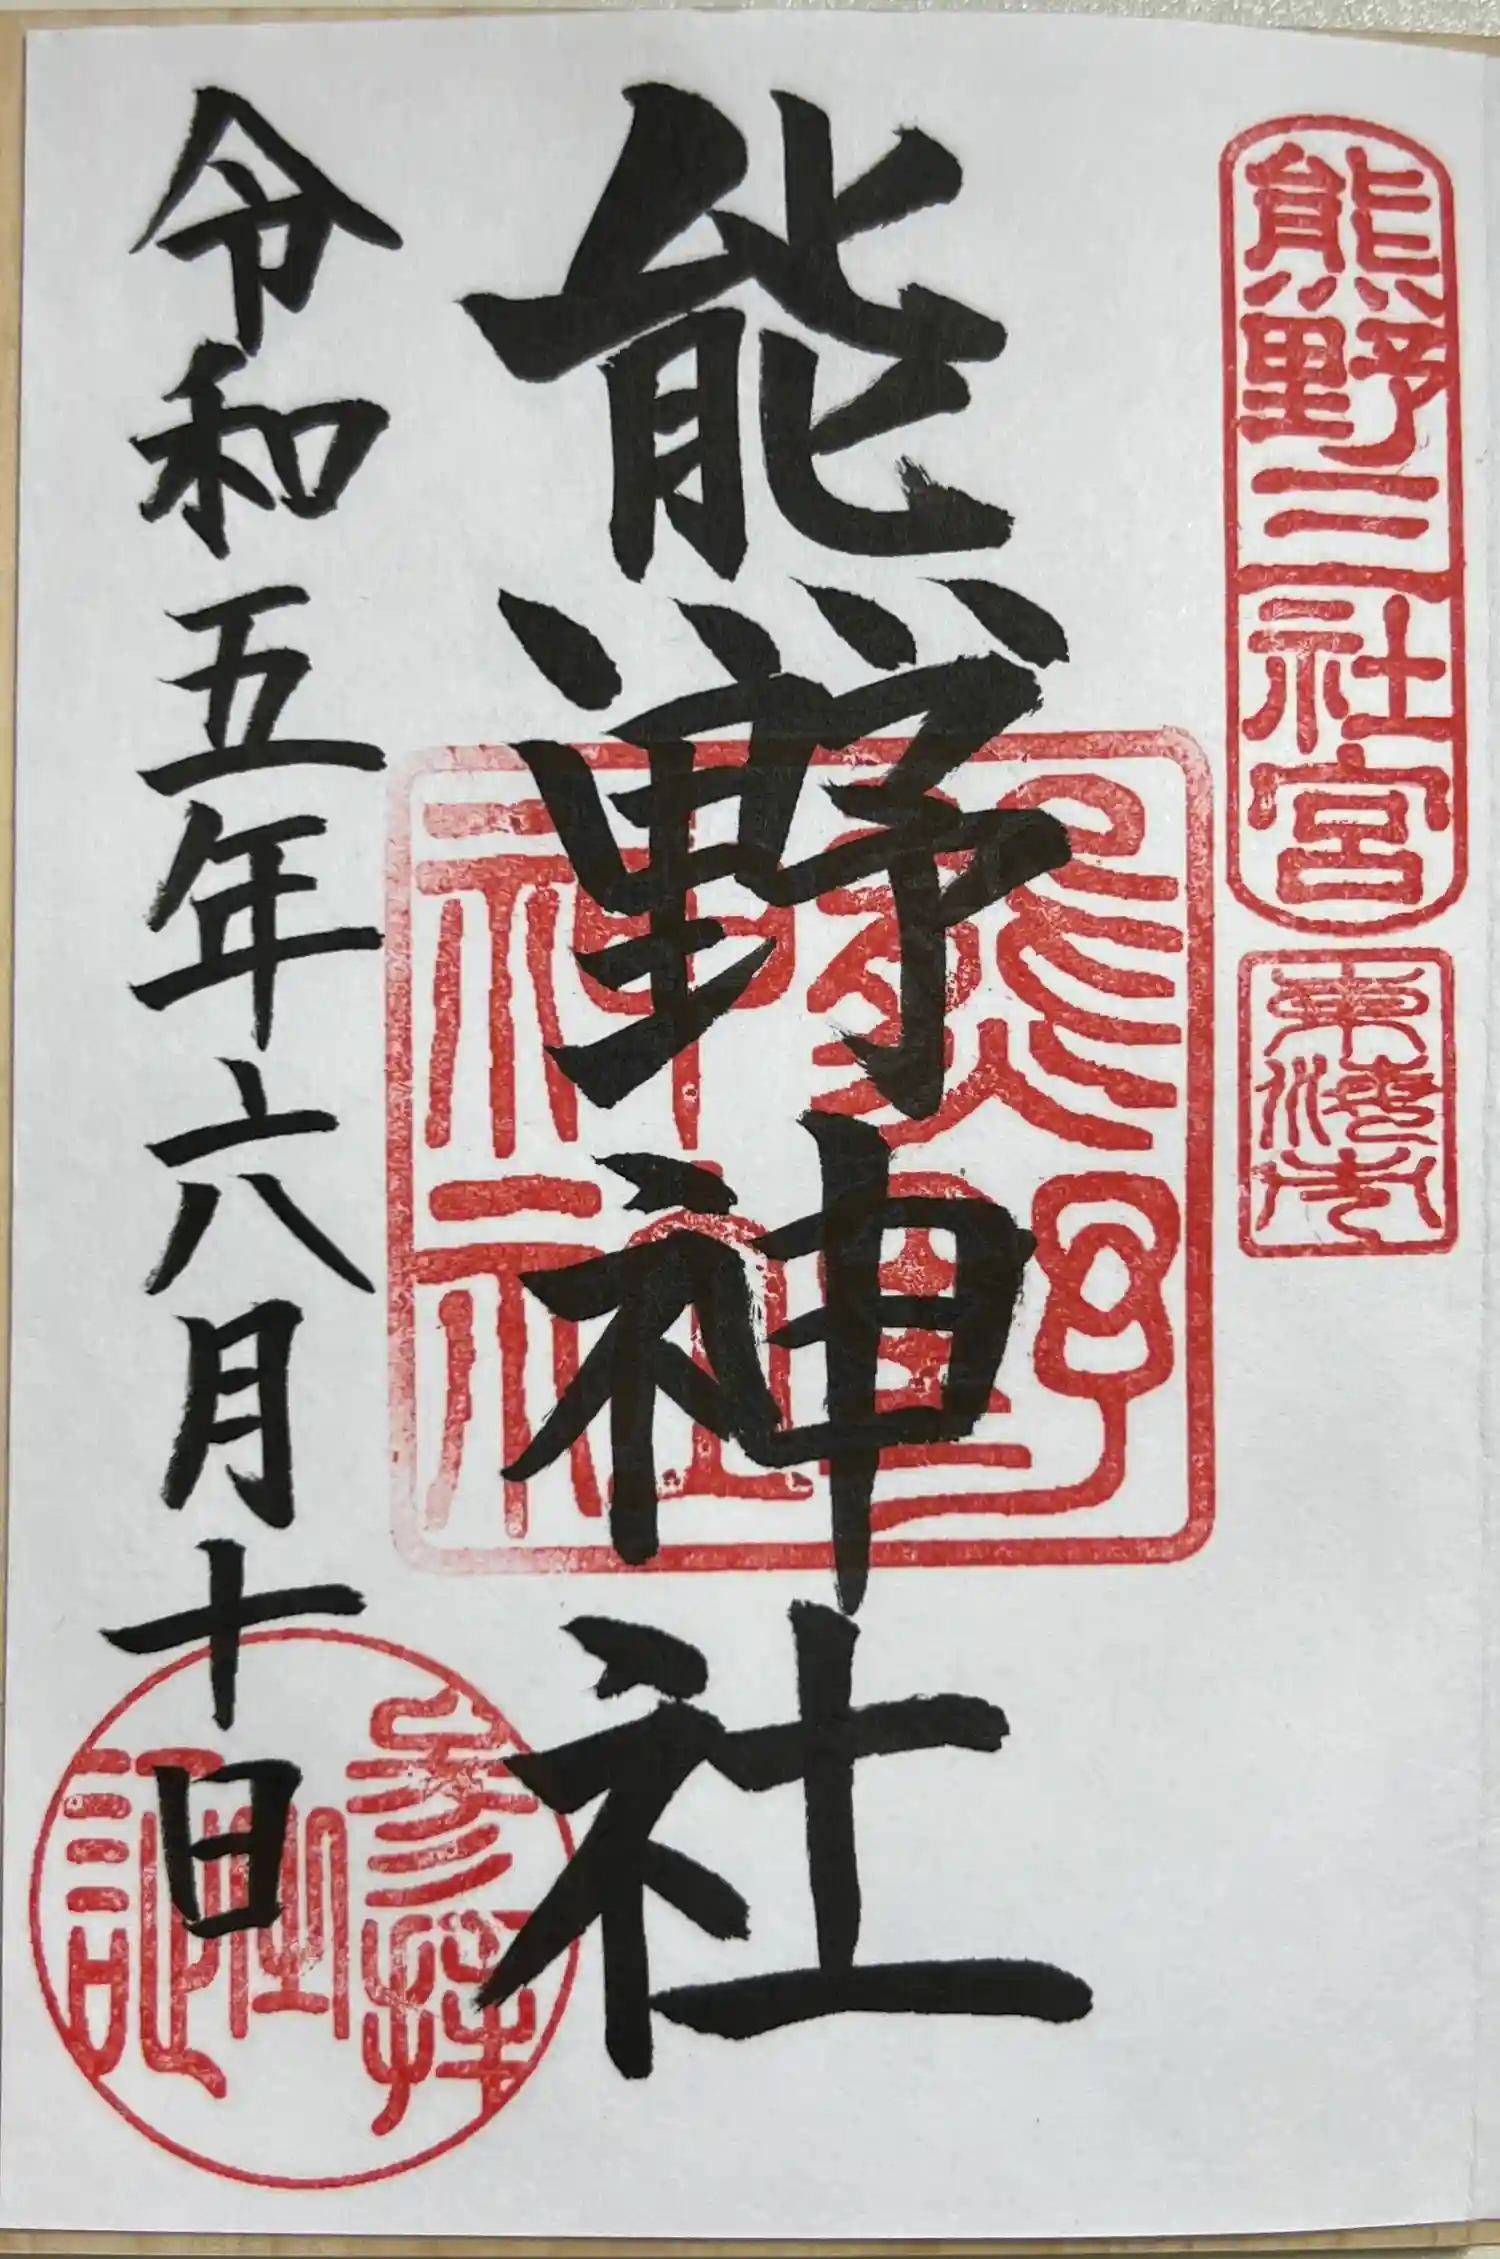 熊野三社宮
熊野神社
熊野
神社
令和五年六月十日
参拝
記